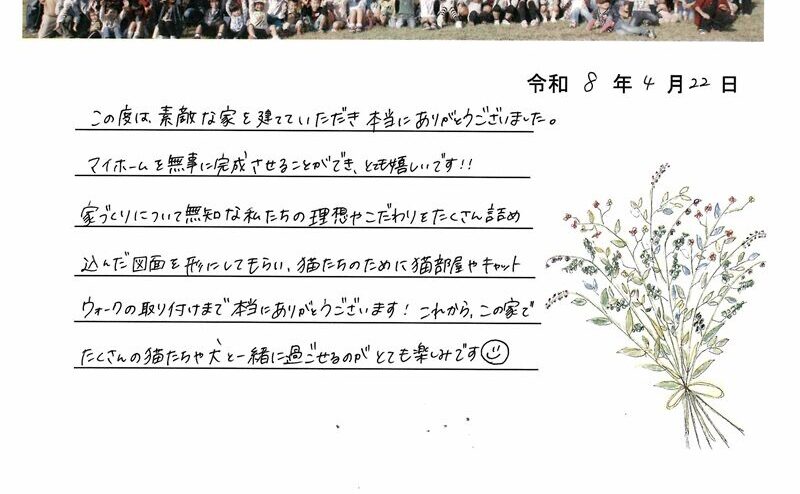 令和 8 年 4 月 22 日
この度は、素敵な家を建てていただき本当にありがとうございました。
マイホームを無事に完成させることができ、とても嬉しいです!!
家づくりについて無知な私たちの理想やこだわりをたくさん詰め
込んだ図面を形にしてもらい、猫たちのために猫部屋やキャット
ウォークの取り付けまで本当にありがとうございます! これから、この家で
たくさんの猫たちや犬と一緒に過ごせるのがとても楽しみです☺